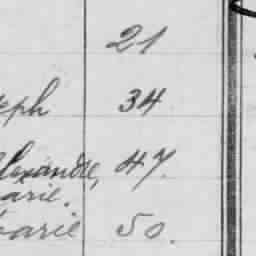 21
eph 34
lexandre, 47.
arie.
arie 50.